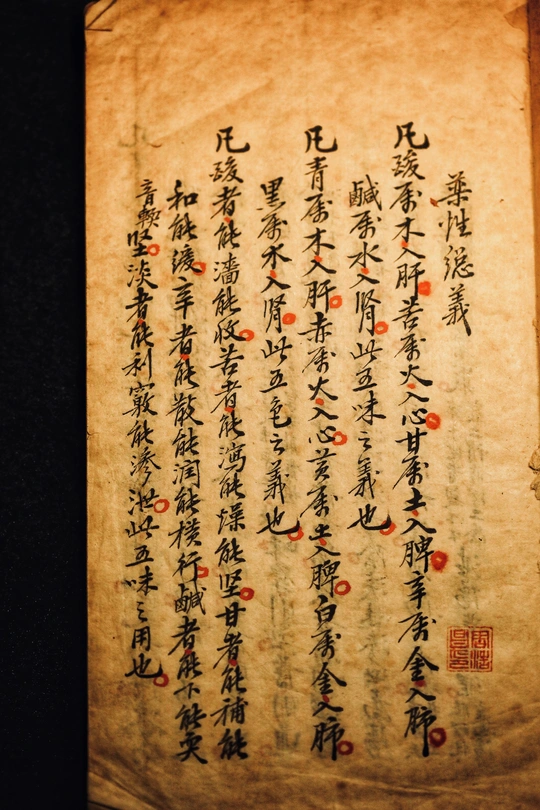 藥性總義
凡酸屬木入肝苦屬火入心甘屬土入脾辛屬金入肺
鹹屬水入腎此五味之義也
凡青屬木入肝赤屬火入心黃屬土入脾白屬金入肺
黑屬水入腎此五色之義也
凡酸者能濇能收苦者能瀉能燥能坚甘者能補能
和能緩辛者能散能潤能橫行鹹者能下能耎
堅淡者能利竅能滲泄此五味之用也